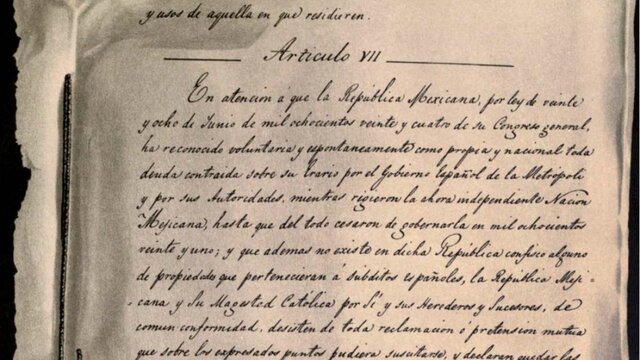 y usos de aquella en que residieren.
Articulo VII
En atencion á que la República Mexicana, por ley de veinte
y ocho de Junio de mil ochocientos veinte y cuatro de su Congreso general,
ha reconocido voluntaria y espontaneamente como propia y nacional toda
deuda contraida sobre su Erario por el Gobierno Español de la Metropoli
y por sus Autoridades, mientras rigieron la ahora independiente Nacion
Mejicana, hasta que del todo cesaron de gobernarla en mil ochocientos
veinte y uno; y que ademas no existe en dicha República confisco alguno
de propiedades que pertenecieran á subditos españoles, la República Meji-
cana y Su Magestad Católica por Sí y sus Herederos y Sucesores, de
comun conformidad, desisten de toda reclamacion ó pretension mutua
que sobre los expresados puntos pudiera suscitarse, y declaran quedar las
B